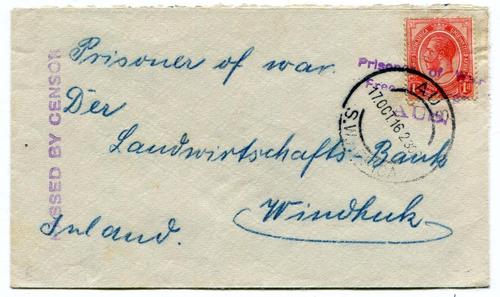 Prisoner of war.
Der
Landwirtschafts-Bank
Windhuk
Inland.
PASSED BY CENSOR
Prisoner of War
Free
AUS
AUS
17 OCT 16
S.W.AFRICA
1d